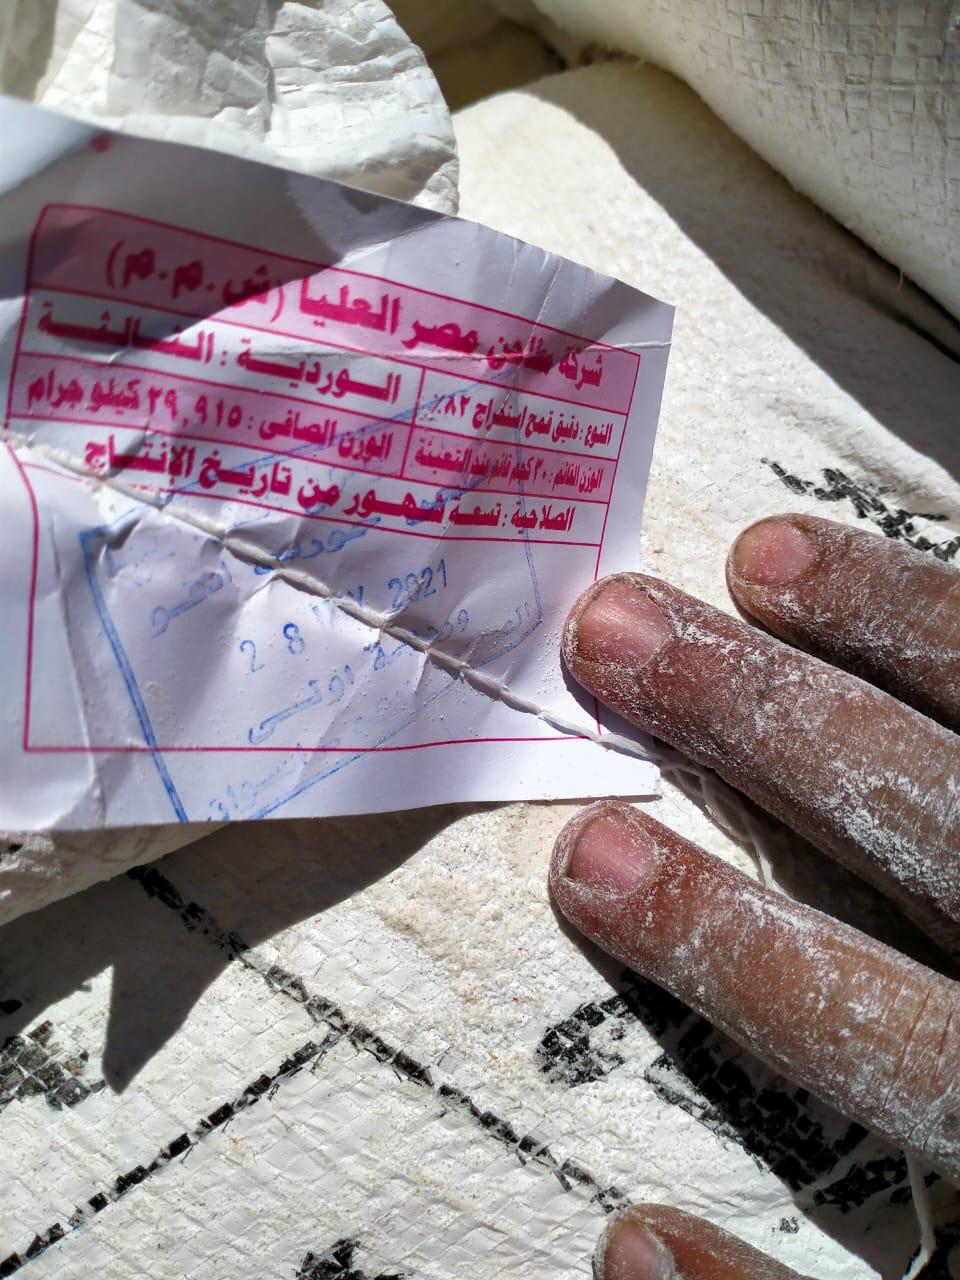 شركة مطاحن مصر العليا (ش.م.م)
الورديـة : الثـالثـة
النوع : دقيق قمح استخراج ٨٢٪
الوزن الصافى : ٢٩,٩١٥ كيلو جرام
الوزن القائم : ٣٠ كجم قائم عند التعبئة
الصلاحية : تسعـة شهور من تاريخ الإنتاج
2 8 2021